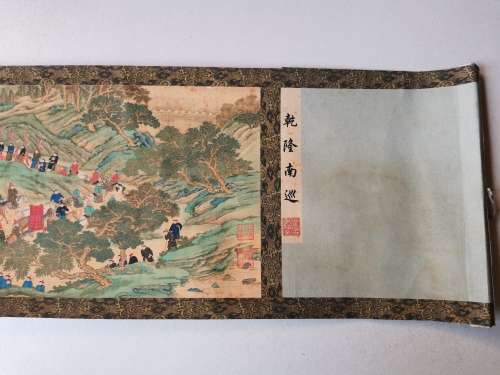 乾隆南巡